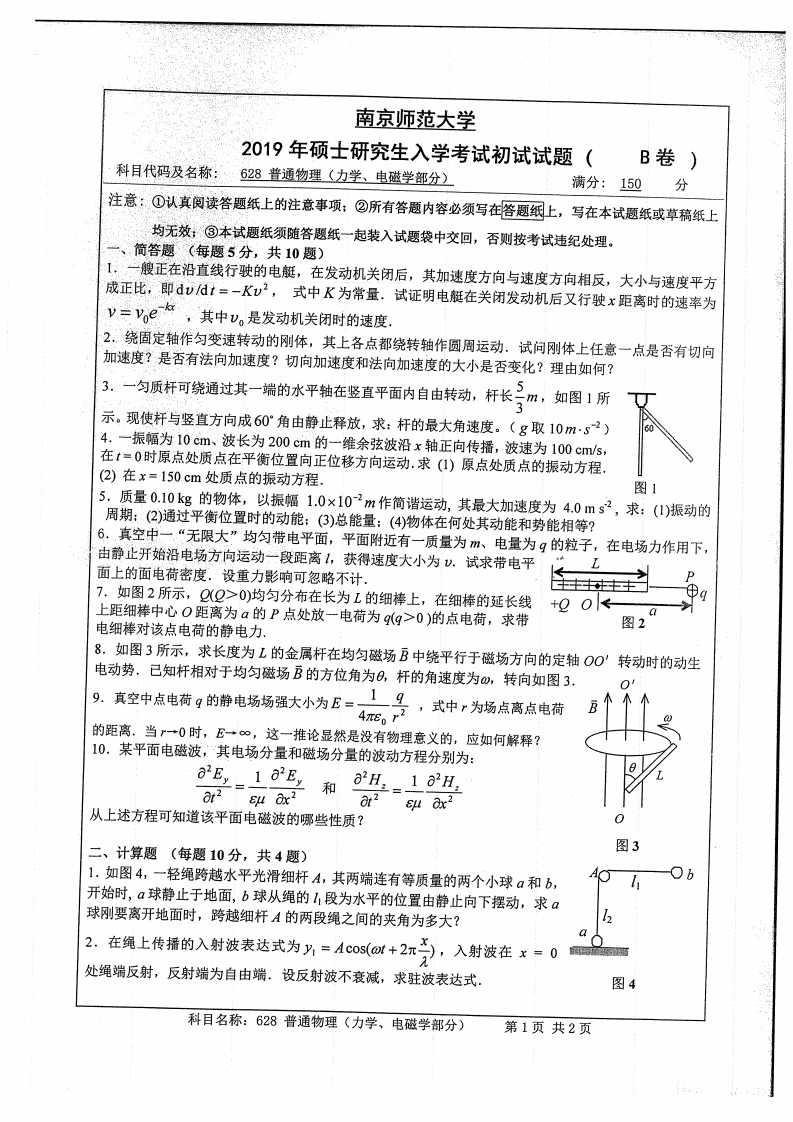 南京师范大学
2019 年硕士研究生入学考试初试试题 ( B 卷 )
科目代码及名称: 628 普通物理(力学、电磁学部分) 满分: 150 分
注意: ①认真阅读答题纸上的注意事项; ②所有答题内容必须写在答题纸上, 写在本试题纸或草稿纸上
均无效; ③本试题纸须随答题纸一起装入试题袋中交回, 否则按考试违纪处理。
一、简答题 (每题 5 分, 共 10 题)
1. 一艘正在沿直线行驶的电艇, 在发动机关闭后, 其加速度方向与速度方向相反, 大小与速度平方
成正比, 即 dυ/dt = −Kυ², 式中 K 为常量. 试证明电艇在关闭发动机后又行驶 x 距离时的速率为
v = v₀e^{-kx} , 其中 υ₀ 是发动机关闭时的速度.
2. 绕固定轴作匀变速转动的刚体, 其上各点都绕转轴作圆周运动. 试问刚体上任意一点是否有切向
加速度? 是否有法向加速度? 切向加速度和法向加速度的大小是否变化? 理由如何?
3. 一匀质杆可绕通过其一端的水平轴在竖直平面内自由转动, 杆长 5/3 m, 如图 1 所
示。现使杆与竖直方向成 60° 角由静止释放, 求: 杆的最大角速度。( g 取 10 m·s⁻² )
60
图 1
4. 一振幅为 10 cm、波长为 200 cm 的一维余弦波沿 x 轴正向传播, 波速为 100 cm/s,
在 t = 0 时原点处质点在平衡位置向正位移方向运动. 求 (1) 原点处质点的振动方程.
(2) 在 x = 150 cm 处质点的振动方程.
5. 质量 0.10 kg 的物体, 以振幅 1.0×10⁻² m 作简谐运动, 其最大加速度为 4.0 m s⁻², 求: (1)振动的
周期; (2)通过平衡位置时的动能; (3)总能量; (4)物体在何处其动能和势能相等?
6. 真空中一“无限大”均匀带电平面, 平面附近有一质量为 m、电量为 q 的粒子, 在电场力作用下,
由静止开始沿电场方向运动一段距离 l, 获得速度大小为 υ. 试求带电平
面上的面电荷密度. 设重力影响可忽略不计.
7. 如图 2 所示, Q(Q>0)均匀分布在长为 L 的细棒上, 在细棒的延长线
上距细棒中心 O 距离为 a 的 P 点处放一电荷为 q(q>0 )的点电荷, 求带
电细棒对该点电荷的静电力.
L
P
q
+Q O a
图 2
8. 如图 3 所示, 求长度为 L 的金属杆在均匀磁场 B⃗ 中绕平行于磁场方向的定轴 OO′ 转动时的动生
电动势. 已知杆相对于均匀磁场 B⃗ 的方位角为θ, 杆的角速度为ω, 转向如图 3.
9. 真空中点电荷 q 的静电场场强大小为 E = 1/(4πε₀) q/r² , 式中 r 为场点离点电荷
的距离. 当 r→0 时, E→∞, 这一推论显然是没有物理意义的, 应如何解释?
10. 某平面电磁波, 其电场分量和磁场分量的波动方程分别为:
∂²E_y/∂t² = 1/(εμ) ∂²E_y/∂x² 和 ∂²H_z/∂t² = 1/(εμ) ∂²H_z/∂x²
从上述方程可知道该平面电磁波的哪些性质?
O′
B⃗
ω
θ
L
O
图 3
二、计算题 (每题 10 分, 共 4 题)
1. 如图 4, 一轻绳跨越水平光滑细杆 A, 其两端连有等质量的两个小球 a 和 b,
开始时, a 球静止于地面, b 球从绳的 l₁ 段为水平的位置由静止向下摆动, 求 a
球刚要离开地面时, 跨越细杆 A 的两段绳之间的夹角为多大?
2. 在绳上传播的入射波表达式为 y₁ = A cos(ωt + 2π x/λ) , 入射波在 x = 0
处绳端反射, 反射端为自由端. 设反射波不衰减, 求驻波表达式.
A
l₁
b
l₂
a
图 4
科目名称: 628 普通物理(力学、电磁学部分) 第 1 页 共 2 页